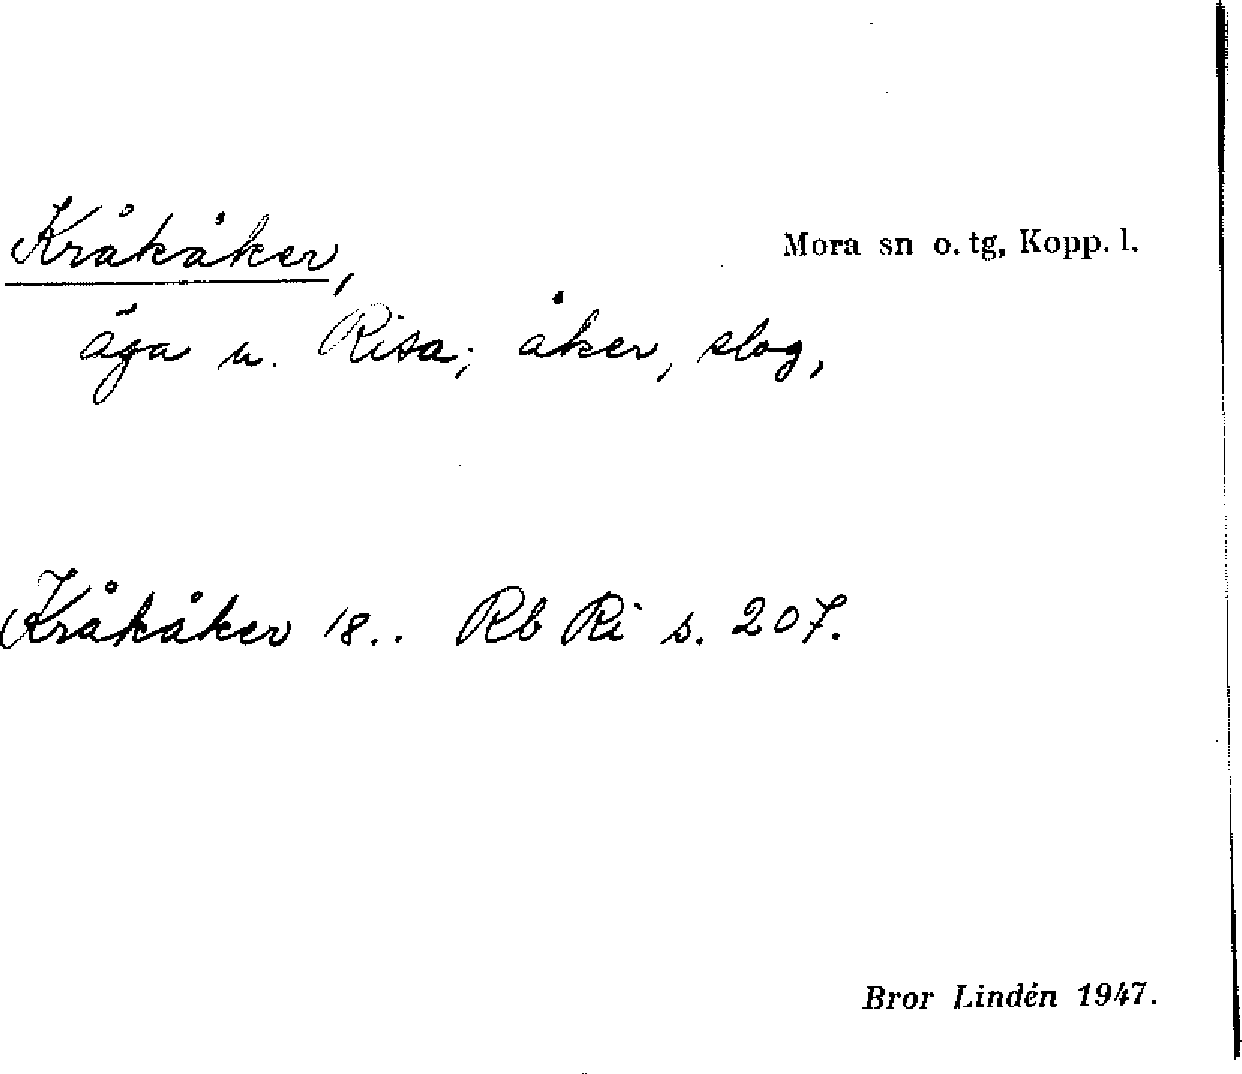 Kråkåker,
Mora sn o. tg, Kopp. l.
äga u. Risa; åker, slog,
Kråkåker 18.. Rb Ri s. 207.
Bror Lindén 1947.